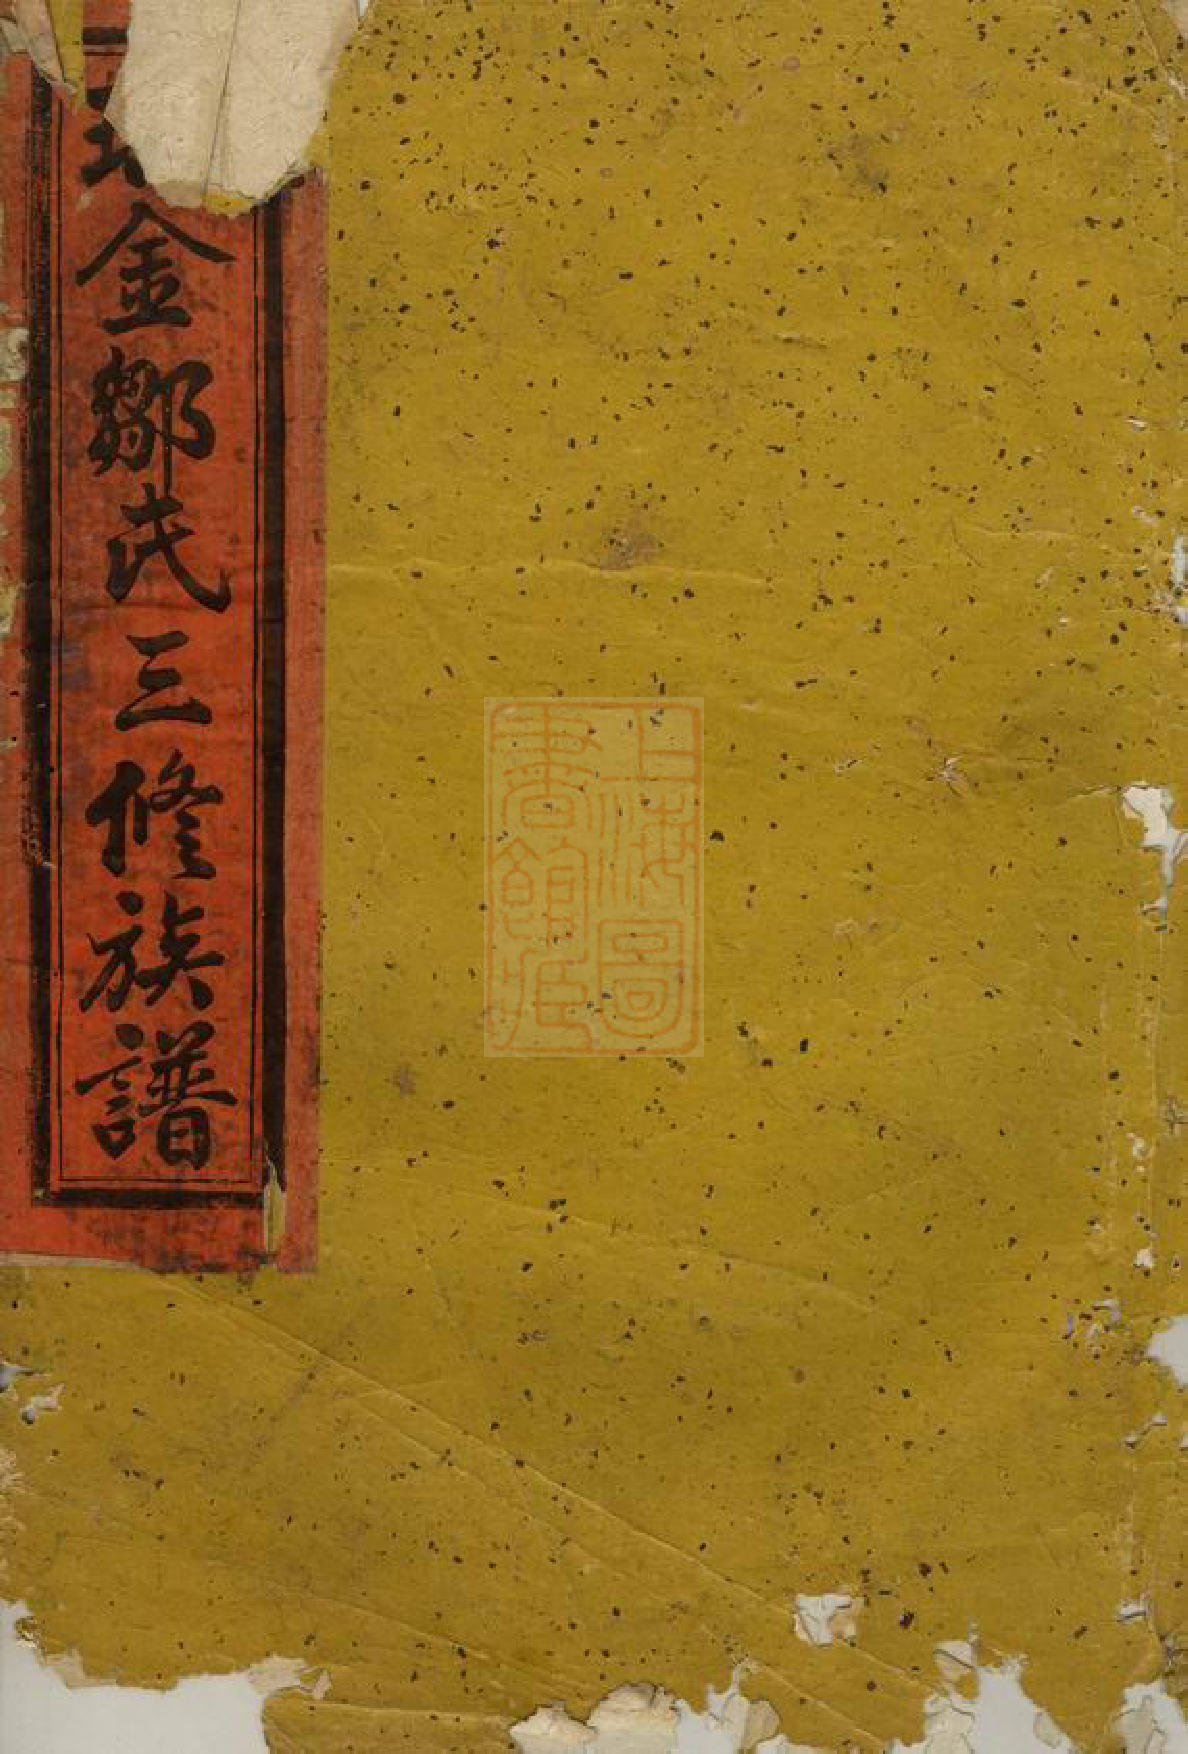 金鄒氏三修族譜
上海圖
書館藏